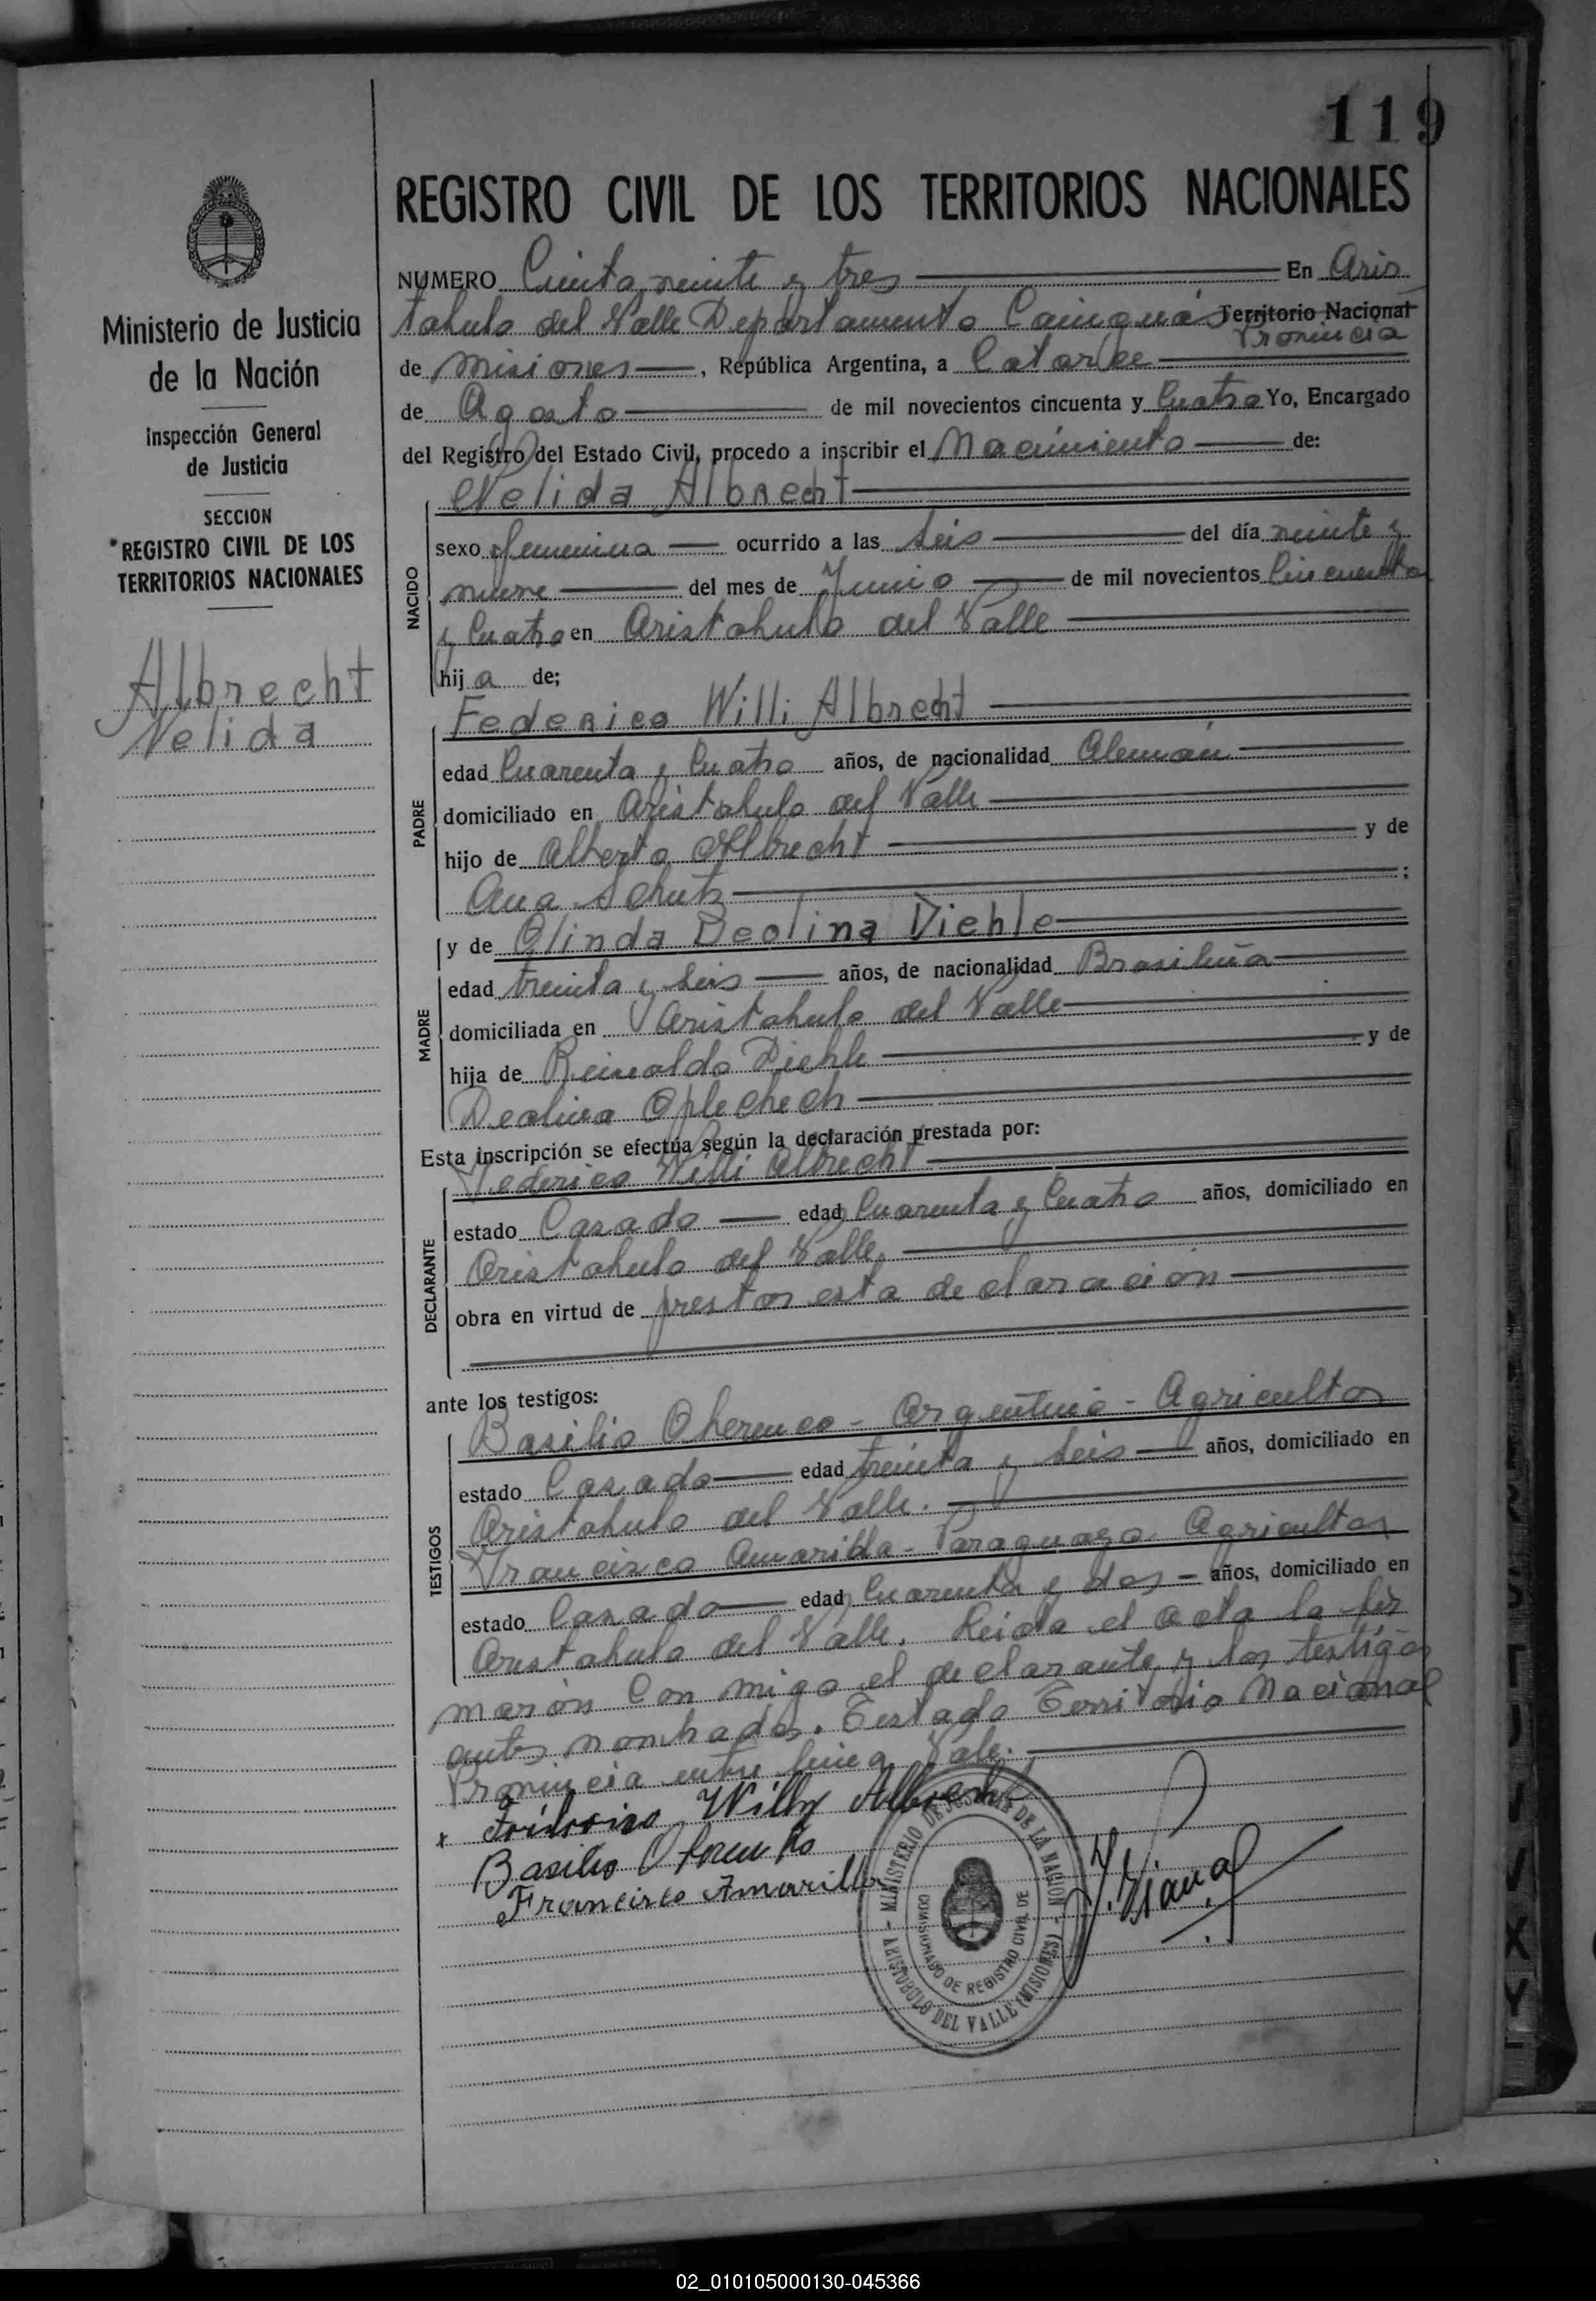 119
REGISTRO CIVIL DE LOS TERRITORIOS NACIONALES
Ministerio de Justicia
de la Nación
Inspección General
de Justicia
SECCION
REGISTRO CIVIL DE LOS
TERRITORIOS NACIONALES
Albrecht
Nelida
NUMERO Ciento veinte y tres En Aris
tobulo del Valle Departamento Cainguás Territorio Nacional
Provincia
de Misiones, República Argentina, a Catorce
de Agosto de mil novecientos cincuenta y Cuatro Yo, Encargado
del Registro del Estado Civil, procedo a inscribir el Nacimiento de:
Nelida Albrecht
NACIDO
sexo femenina ocurrido a las seis del día veinte y
nueve del mes de Junio de mil novecientos Cincuenta
y Cuatro en Aristobulo del Valle
hij a de;
Federico Willi Albrecht
PADRE
edad Cuarenta y Cuatro años, de nacionalidad Alemán
domiciliado en Aristobulo del Valle
hijo de Alberto Albrecht y de
Ana Schutz ;
y de Olinda Deolina Diehle
MADRE
edad treinta y seis años, de nacionalidad Brasileña
domiciliada en Aristobulo del Valle
hija de Reinaldo Diehle y de
Deolina
Esta inscripción se efectúa según la declaración prestada por:
Federico Willi Albrecht
DECLARANTE
estado Casado edad Cuarenta y Cuatro años, domiciliado en
Aristobulo del Valle,
obra en virtud de prestar esta declaracion
ante los testigos:
Basilio - Argentino - Agricultor
TESTIGOS
estado Casado edad treinta y seis años, domiciliado en
Aristobulo del Valle.
Francisco Amarilla - Paraguayo Agricultor
estado Casado edad Cuarenta y dos - años, domiciliado en
Aristobulo del Valle. Leida el acta la fir
marón Con migo el declarante y los testigos
antes nombrados. Testado Territorio Nacional
Provincia entre linea Vale.
x Willy Albrecht
Basilio
Francisco Amarilla
- MINISTERIO DE JUSTICIA DE LA NACION -
COMISIONADO DE REGISTRO CIVIL DE
ARISTOBULO DEL VALLE (MISIONES)
02_010105000130-045366